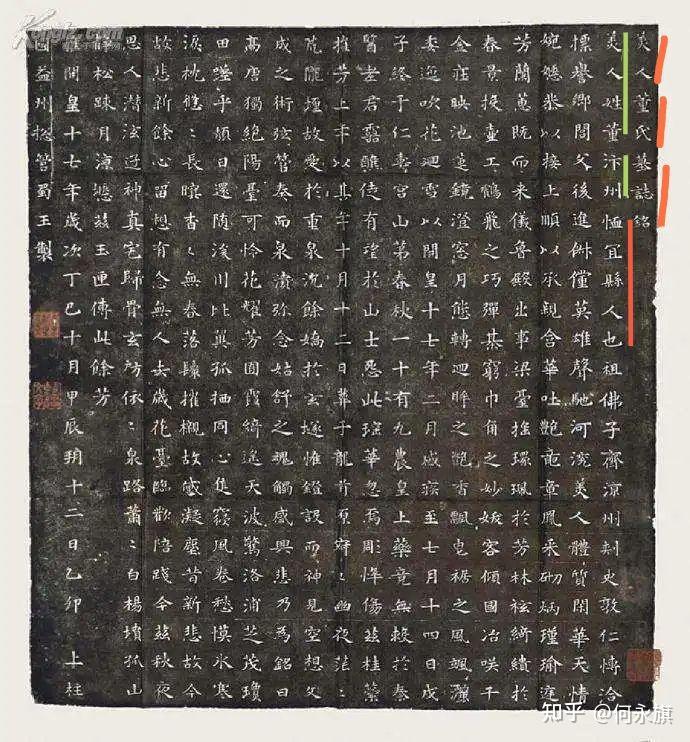 美人董氏墓誌銘
美人姓董汴州恤宜縣人也祖佛子齊涼州刺史敦仁博洽
標譽鄉閭父後進俶儻英雄聲馳河渷美人體質閑華天情
婉嫕恭以接上順以承親含華吐艷竜章鳳采砌炳瑾瑜庭
芳蘭蕙既而来儀魯殿出事梁臺搖環珮於芳林袨綺繢於
春景投壺工鶴飛之巧彈棊窮巾角之妙妖容傾國冶咲千
金莊映池蓮鏡澄窓月態轉迴眸之艷香飄曳裾之風颯灑
委迤吹花迴雪以開皇十七年二月感疾至七月十四日戊
子終于仁壽宮山第春秋一十有九農皇上藥竟無救於秦
醫老君靈醮徒有望於山士怨此瑤華忽焉彫悴傷茲桂蘂
摧芳上年以其年十月十二日葬于龍首原寂〻幽夜茫〻
荒隴埋故愛於重泉沉餘嬌於玄隧惟鐙設而神見空想文
成之術弦管奏而泉濆弥念姑舒之魂觸感興悲乃為銘曰
高唐獨絕陽臺可怜花耀芳囿霞綺遙天波驚洛浦芝茂瓊
田嗟乎頹日還隨浚川比翼孤栖同心隻寢風卷愁慔冰寒
淚枕悠〻長暝杳〻無春落鬟摧櫬故黛凝塵昔新悲故今
故悲新餘心留想有念無人去歲花臺臨歡陪踐今茲秋夜
思人潛泫迁神真宅歸骨玄房依〻泉路蕭〻白楊墳孤山
靜松踈月涼瘞茲玉匣傳此餘芳
惟開皇十七年歲次丁巳十月甲辰朔十二日乙卯 上柱
國益州揔管蜀王製
知乎 @何永旗